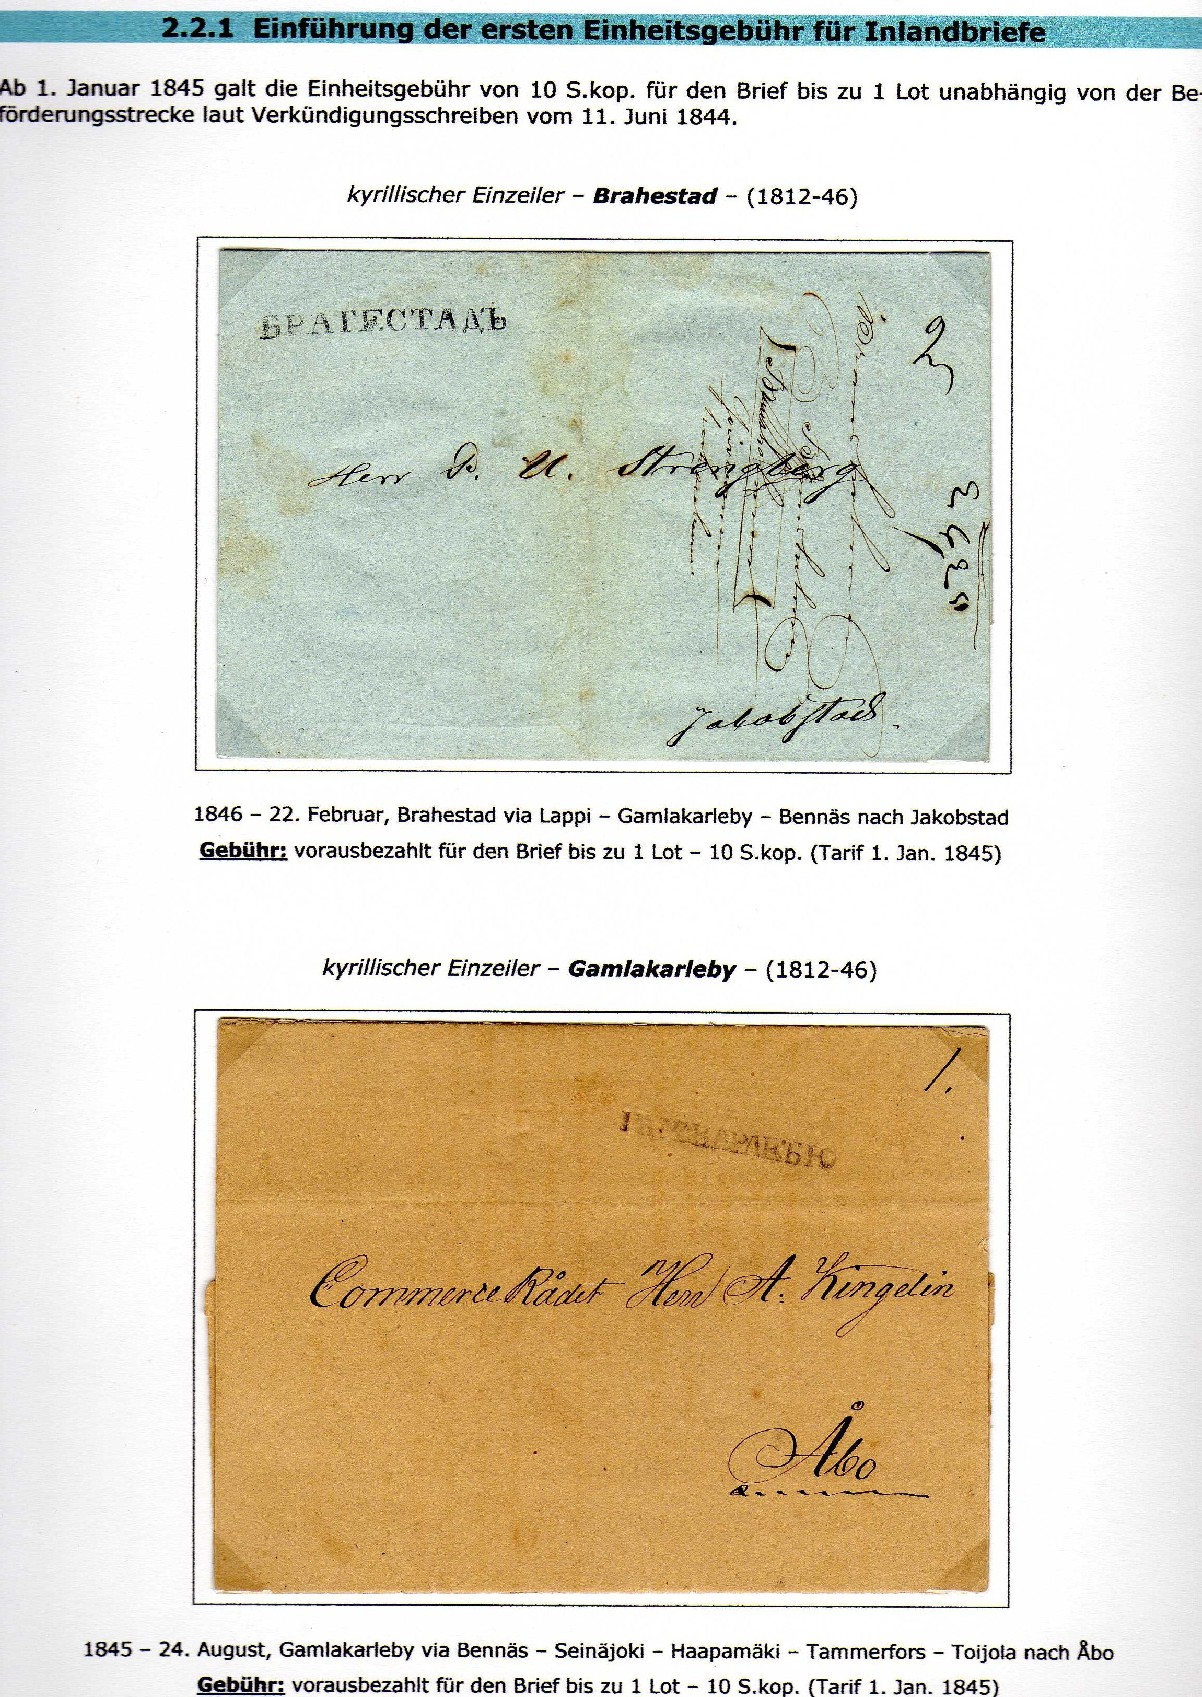 2.2.1 Einführung der ersten Einheitsgebühr für Inlandbriefe
Ab 1. Januar 1845 galt die Einheitsgebühr von 10 S.kop. für den Brief bis zu 1 Lot unabhängig von der Be-
förderungsstrecke laut Verkündigungsschreiben vom 11. Juni 1844.
kyrillischer Einzeiler – Brahestad – (1812-46)
БРАГЕСТАДЪ
Herr P. U. Strengberg
Jakobstad.
1846 – 22. Februar, Brahestad via Lappi – Gamlakarleby – Bennäs nach Jakobstad
Gebühr: vorausbezahlt für den Brief bis zu 1 Lot – 10 S.kop. (Tarif 1. Jan. 1845)
kyrillischer Einzeiler – Gamlakarleby – (1812-46)
1.
Commerce Rådet Herr A. Kingelin
Åbo
1845 – 24. August, Gamlakarleby via Bennäs – Seinäjoki – Haapamäki – Tammerfors – Toijola nach Åbo
Gebühr: vorausbezahlt für den Brief bis zu 1 Lot – 10 S.kop. (Tarif 1. Jan. 1845)